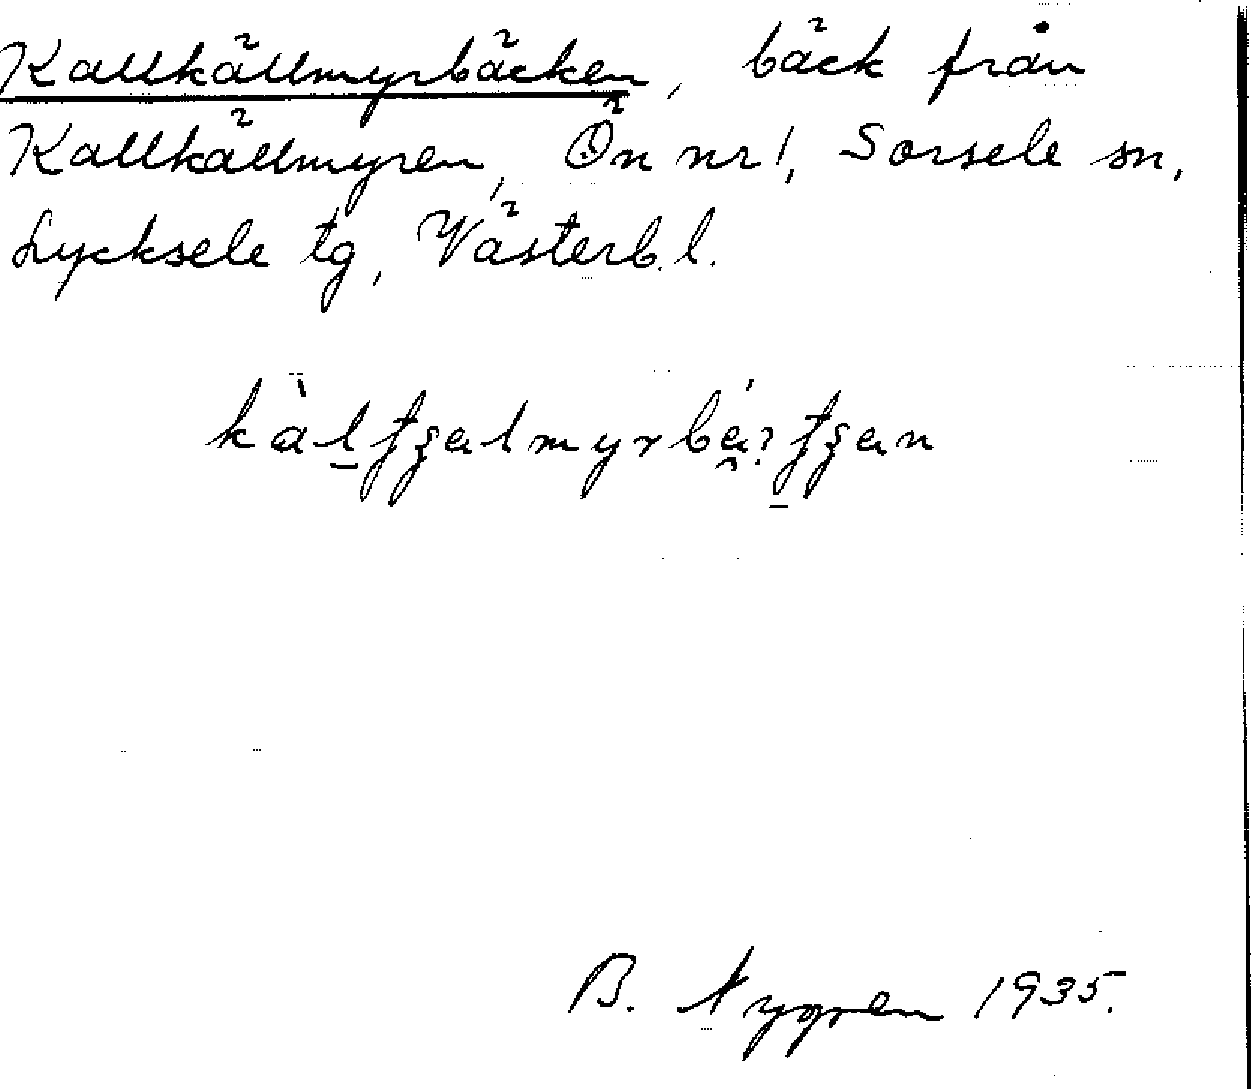 Kallkällmyrbäcken, bäck från
Kallkällmyren, Ön nr 1, Sorsele sn,
Lycksele tg, Västerb. l.
B. Nygren 1935.